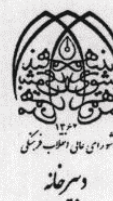 ۱۳۶۰
شورای عالی انقلاب فرهنگی
دبیرخانه